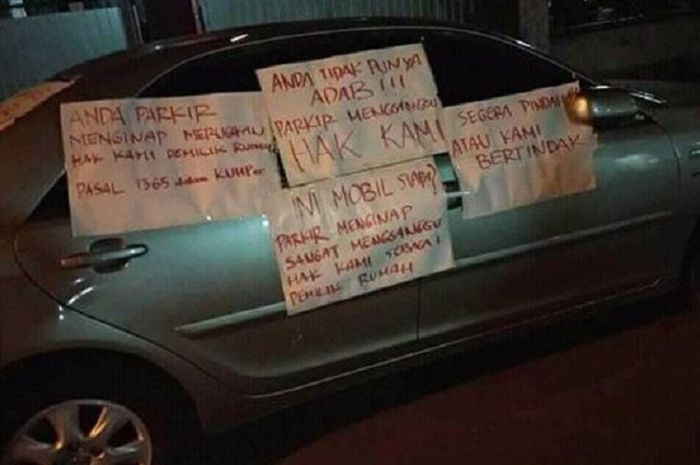 ANDA PARKIR
MENGINAP MERUGIKAN
HAK KAMI PEMILIK RUMAH
PASAL 1365 dalam KUHPer
ANDA TIDAK PUNYA
ADAB !!!
PARKIR MENGGANGGU
HAK KAMI
SEGERA PINDAHKAN
ATAU KAMI
BERTINDAK
INI MOBIL SIAPA?
PARKIR MENGINAP
SANGAT MENGGANGGU
HAK KAMI SEBAGAI
PEMILIK RUMAH